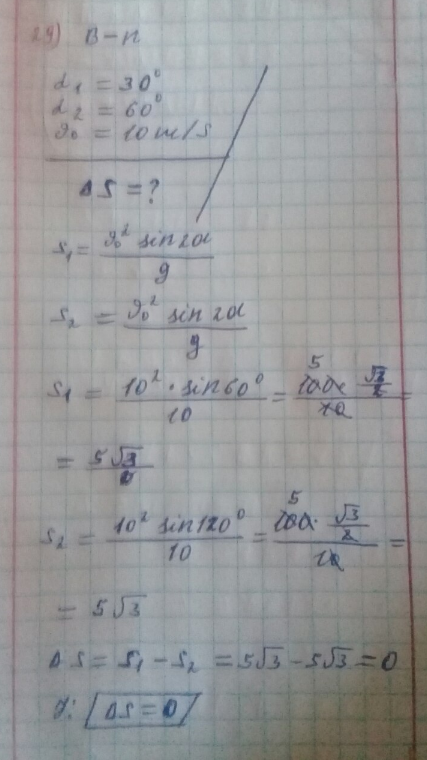 29) B-n
α₁ = 30°
α₂ = 60°
ϑ₀ = 10 m/s
ΔS = ?
S₁ = ϑ₀² sin2α / g
S₂ = ϑ₀² sin2α / g
S₁ = 10² · sin60° / 10 = 5 100 · √3/2 / 10 =
= 5√3
S₂ = 10² sin120° / 10 = 5 100 · √3/2 / 10 =
= 5√3
ΔS = S₁ - S₂ = 5√3 - 5√3 = 0
J: ΔS = 0